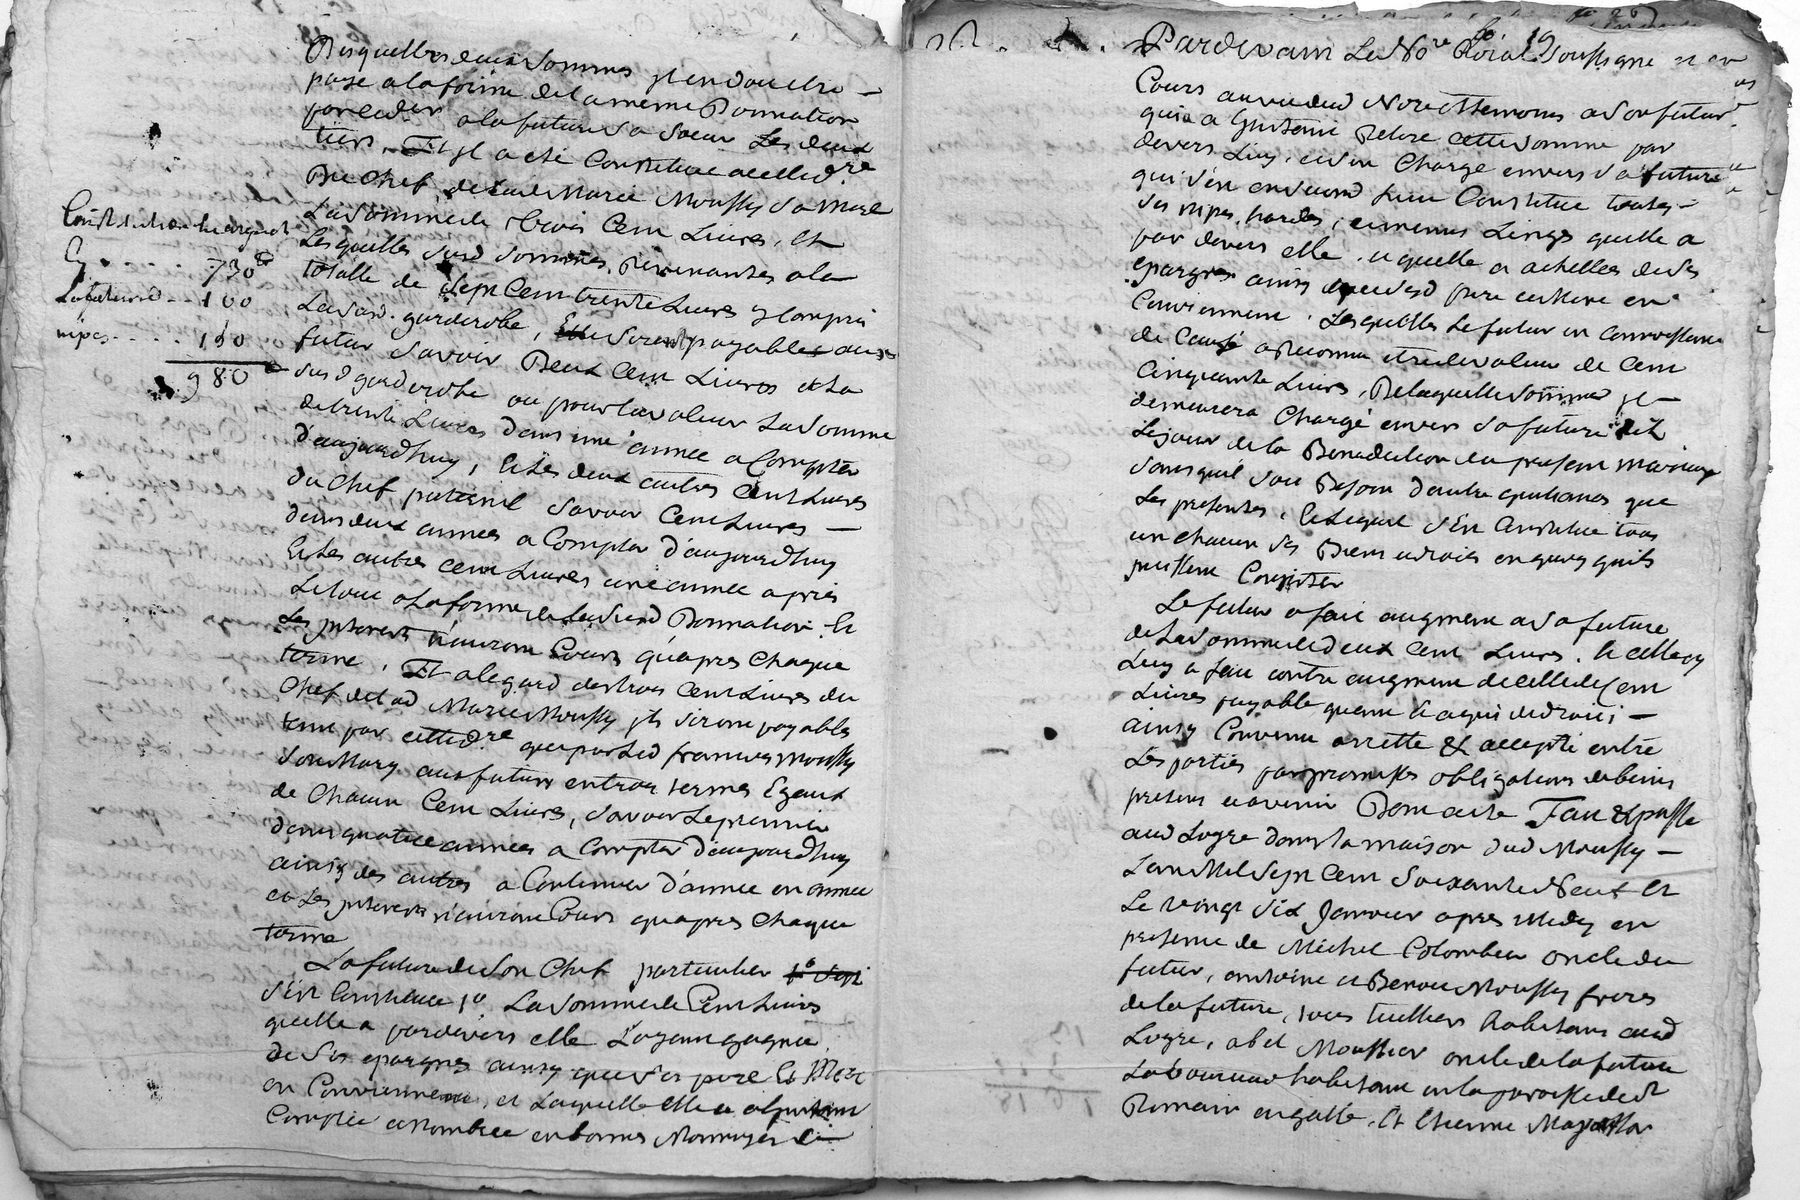 Desquelles deux sommes il en doit etre
payé a la forme de la meme Donnation
par led. a la future sa soeur Les deux
tiers, Et il a eté Constitué a elle d.re
Du Chef de lad Marie Moussy sa Mere
La somme de trois Cent Livres, Et
Lesquelles susd sommes, Revenantes a la
totalle de Sept Cent trente Livres y compris
La susd. garderobe, seront payables aux
futur Savoir Deux Cent Livres et La
susd garderobe ou pour la valeur La somme
de trente Livres dans une année a Compter
d'aujourdhuy, Et Les deux autres Cent Livres
du Chef paternel savoir Cent Livres
dans deux années a Compter d'aujourdhuy
Et Les autres cent Livres une année apres
Le tout a La forme de La susd Donnation, Et
Les Interets n'auront Cours qu'apres Chaque
terme, Et a legard des trois Cent Livres du
Chef de lad Marie Moussy ils seront payables
tant par cette d.re que par Led francois Moussy
son Mary aux futurs en trois termes Egaux
de Chacun Cent Livres, savoir Le premier
dans quatre années a Compter d'aujourdhuy
ainsy des autres a Continuer d'année en année
et Les Interets n'auront Cours qu'apres Chaque
terme
La future de Son Chef particulier
s'est Constituée 1o La somme de Cent Livres
quelle a pardevers elle L'ayant gagnée
de Ses epargnes ainsy que ses pere Et Mere
en Conviennent, et Laquelle elle a a linstant
Comptée et nombrée en bonnes Monnoyes de
Constitution en argent
Cy 730
La future 100
nipes 150
980
Pardevant Le No.re Roial Soussigné
Cours au veu dud Nore et temoins a son futur
qui a Linstant Retiré cette somme par
devers Luy, et s'en Charge envers Sa future
qui s'en en second Lieu Constitue toutes
ses nipes, hardes, et menus Linges quelle a
par devers elle, et quelle a achettés de ses
epargnes ainsy que sesd pere et Mere en
Conviennent. Lesquelles Le futur en Connoissance
de Cause a Reconnu etre de valeur de Cent
Cinquante Livres, De laquelle somme il
demeurera Chargé envers sa future dez
Le jour de la Benediction du present Mariage
sans quil soit Besoin d'autre quittance que
Les presentes, Et Lequel s'est Constitué tous
un chacun ses Biens et droits en quoy quils
puissent Consister
Le futur a fait augment a sa future
de La somme de deux Cent Livres. Et celle cy
Luy a fait contre augment de celle de Cent
Livres payable quand Le cas y aura droit
ainsy Convenu arretté & accepté entre
Les parties par promesses obligations de biens
presens et avenir Dont acte Fait & passé
aud Logre dans la maison dud Moussy
L'an Mil Sept Cent Soixante Neuf Et
Le vingt six Janvier apres Midy en
presence de Michel Colombier oncle du
futur, antoine et Benoit Moussy freres
de la future, tous tuilliers habitans aud
Logre, abel Moussier oncle de la future
Laboureur habitant en la paroisse de St
Romain en galle, Et Etienne